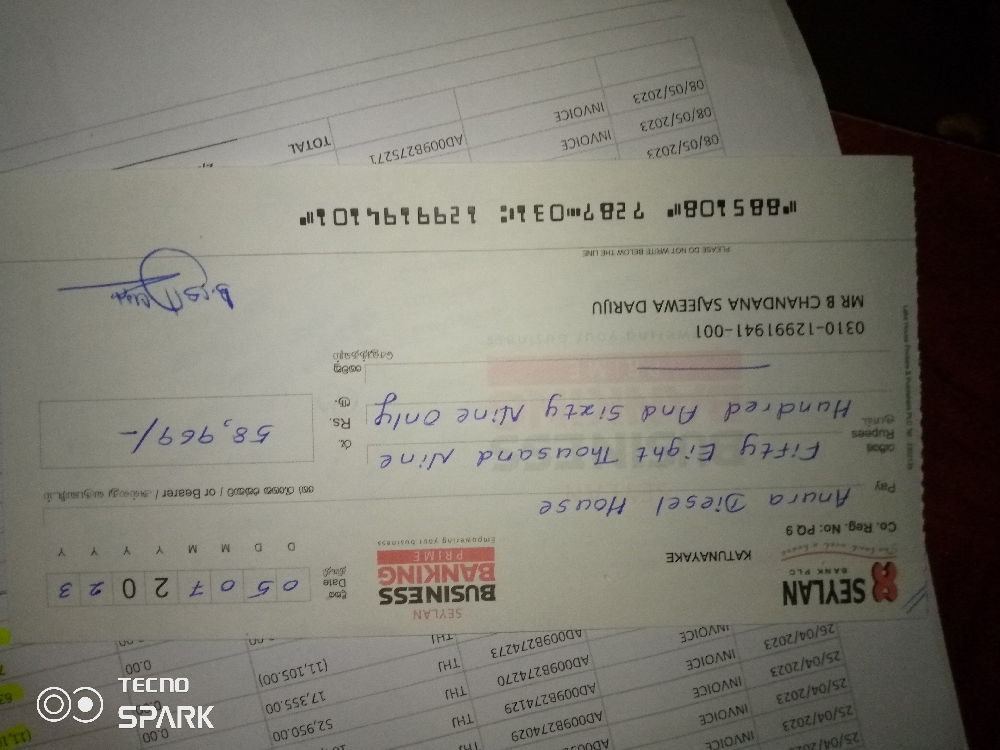 25/04/2023
25/04/2023 INVOICE AD009B274029 THJ 52,950.00
25/04/2023 INVOICE AD009B274129 THJ 17,355.00 0.00
25/04/2023 INVOICE AD009B274270 THJ (11,105.00) 0.00
26/04/2023 INVOICE AD009B274273 THJ 0.00
SEYLAN
BANK PLC
The bank with a heart
KATUNAYAKE
SEYLAN
BUSINESS
BANKING
PRIME
Empowering your business
Date 05 07 2023
D D M M Y Y Y Y
Co. Reg. No: PQ 9
Pay Anura Diesel House
හෝ රැගෙන එන්නාට / or Bearer / அல்லது வருபவரிடம்
Rupees Fifty Eight Thousand Nine
Hundred And Sixty Nine Only
රු. Rs. ரூ. 58,969/-
0310-12991941-001
MR B CHANDANA SAJEEWA DARIJU
PLEASE DO NOT WRITE BELOW THE LINE
⑈885108⑈ 7287⑉031⑆ 129919410 1⑈
08/05/2023 INVOICE AD009B275271 TOTAL
08/05/2023 INVOICE
08/05/2023
TECNO
SPARK